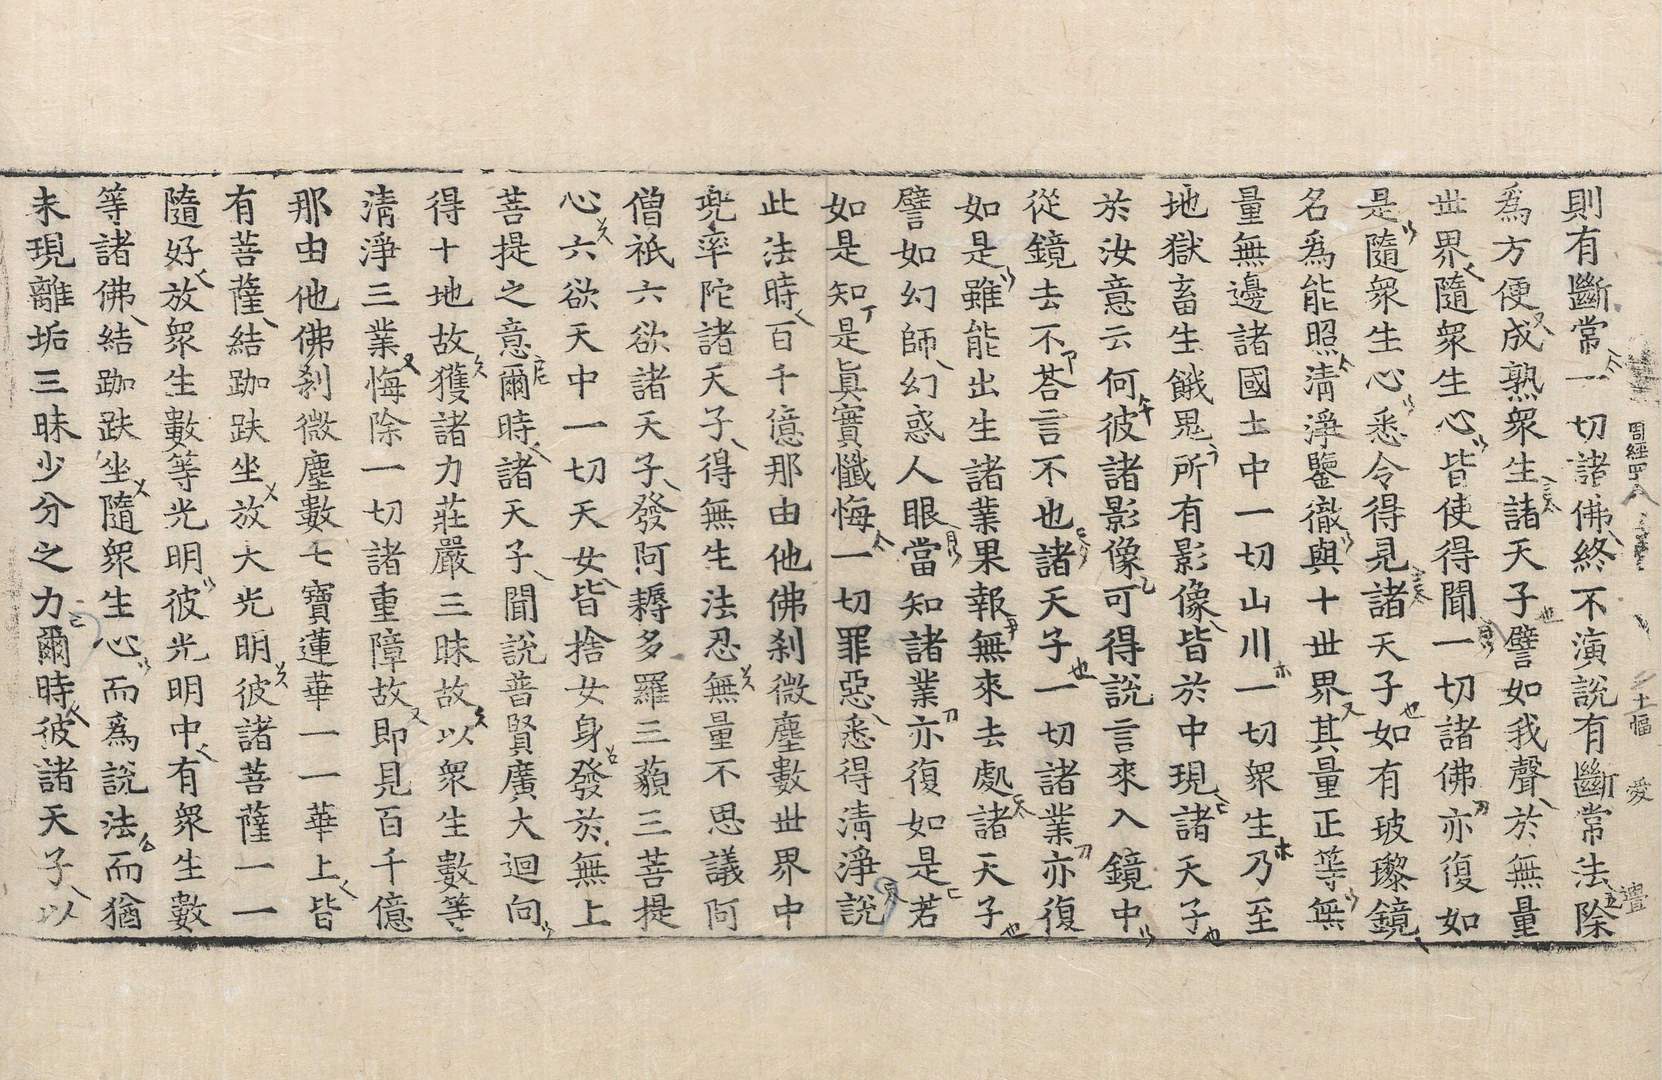 周經四八 十幅 愛 禮
則有斷常一切諸佛終不演說有斷常法除
爲方便成熟衆生諸天子譬如我聲於無量
世界隨衆生心皆使得聞一切諸佛亦復如
是隨衆生心悉令得見諸天子如有玻瓈鏡
名爲能照清淨鑒徹與十世界其量正等無
量無邊諸國土中一切山川一切衆生乃至
地獄畜生餓鬼所有影像皆於中現諸天子
於汝意云何彼諸影像可得說言來入鏡中
從鏡去不荅言不也諸天子一切諸業亦復
如是雖能出生諸業果報無來去處諸天子
譬如幻師幻惑人眼當知諸業亦復如是若
如是知是眞實懺悔一切罪惡悉得清淨說
此法時百千億那由他佛刹微塵數世界中
兜率陀諸天子得無生法忍無量不思議阿
僧祇六欲諸天子發阿耨多羅三藐三菩提
心六欲天中一切天女皆捨女身發於無上
菩提之意爾時諸天子聞說普賢廣大迴向
得十地故獲諸力莊嚴三昧故以衆生數等
清淨三業悔除一切諸重障故即見百千億
那由他佛刹微塵數七寶蓮華一一華上皆
有菩薩結跏趺坐放大光明彼諸菩薩一一
隨好放衆生數等光明彼光明中有衆生數
等諸佛結跏趺坐隨衆生心而爲說法而猶
未現離垢三昧少分之力爾時彼諸天子以